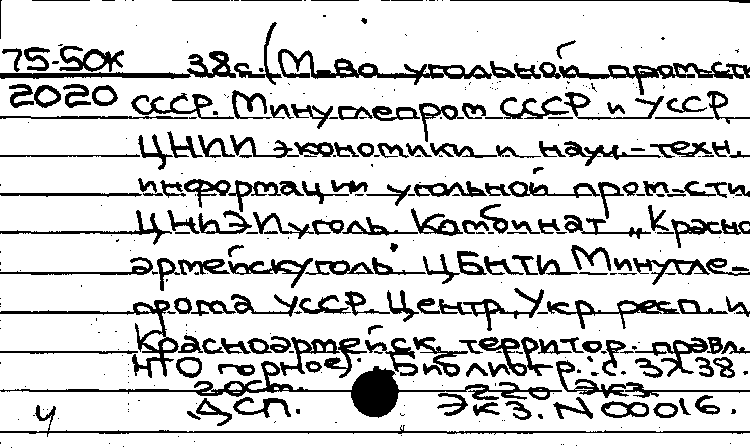 75-50К 38с. (М-во угольной пром-сти
2020 СССР. Минуглепром СССР и УССР.
ЦНИИ экономики и науч.-техн.
информации угольной пром-сти.
ЦНИЭИуголь. Комбинат „Красно
армейскуголь". ЦБНТИ Минугле-
прома УССР. Центр, Укр. респ. и
Красноармейск. территор. правл.
НТО горное). Библиогр.: с. 37-38.
20ст. 220 экз.
ДСП. Экз. N 00016.